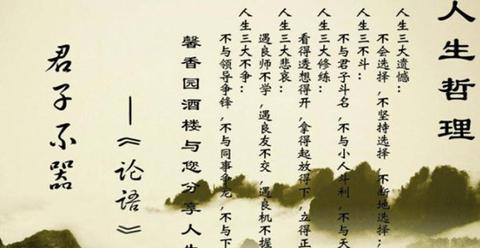 人生哲理
人生三大遗憾：
不会选择，不坚持选择，不断地选择；
人生三不斗：
不与君子斗名，不与小人斗利，不与天
人生三大修练：
看得透想得开，拿得起放得下，立得正
人生三大悲哀：
遇良师不学，遇良友不交，遇良机不握
人生三大不争：
不与领导争锋，不与同事争宠，不与下
馨香园酒楼与您分享人生
—《论语》
君子不器